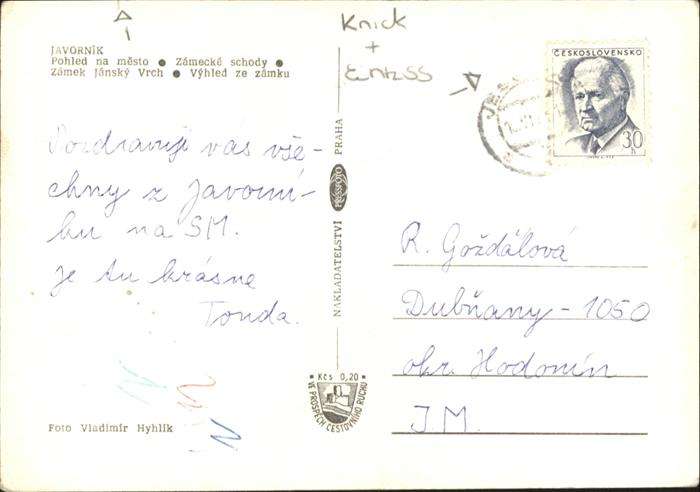 JAVORNÍK
Pohled na město ● Zámecké schody ●
Zámek Jánský Vrch ● Výhled ze zámku
Pozdravuji vás vše-
chny z Javorní-
ku na SM.
je tu krásne
Tonda.
Foto Vladimír Hyhlík
NAKLADATELSTVÍ PRESSFOTO PRAHA
Kčs 0,20
VE PROSPĚCH CESTOVNÍHO RUCHU
Knick
+
ČESKOSLOVENSKO
30
h
R. Gožďálová
Dubňany - 1050
okr. Hodonín
J M.